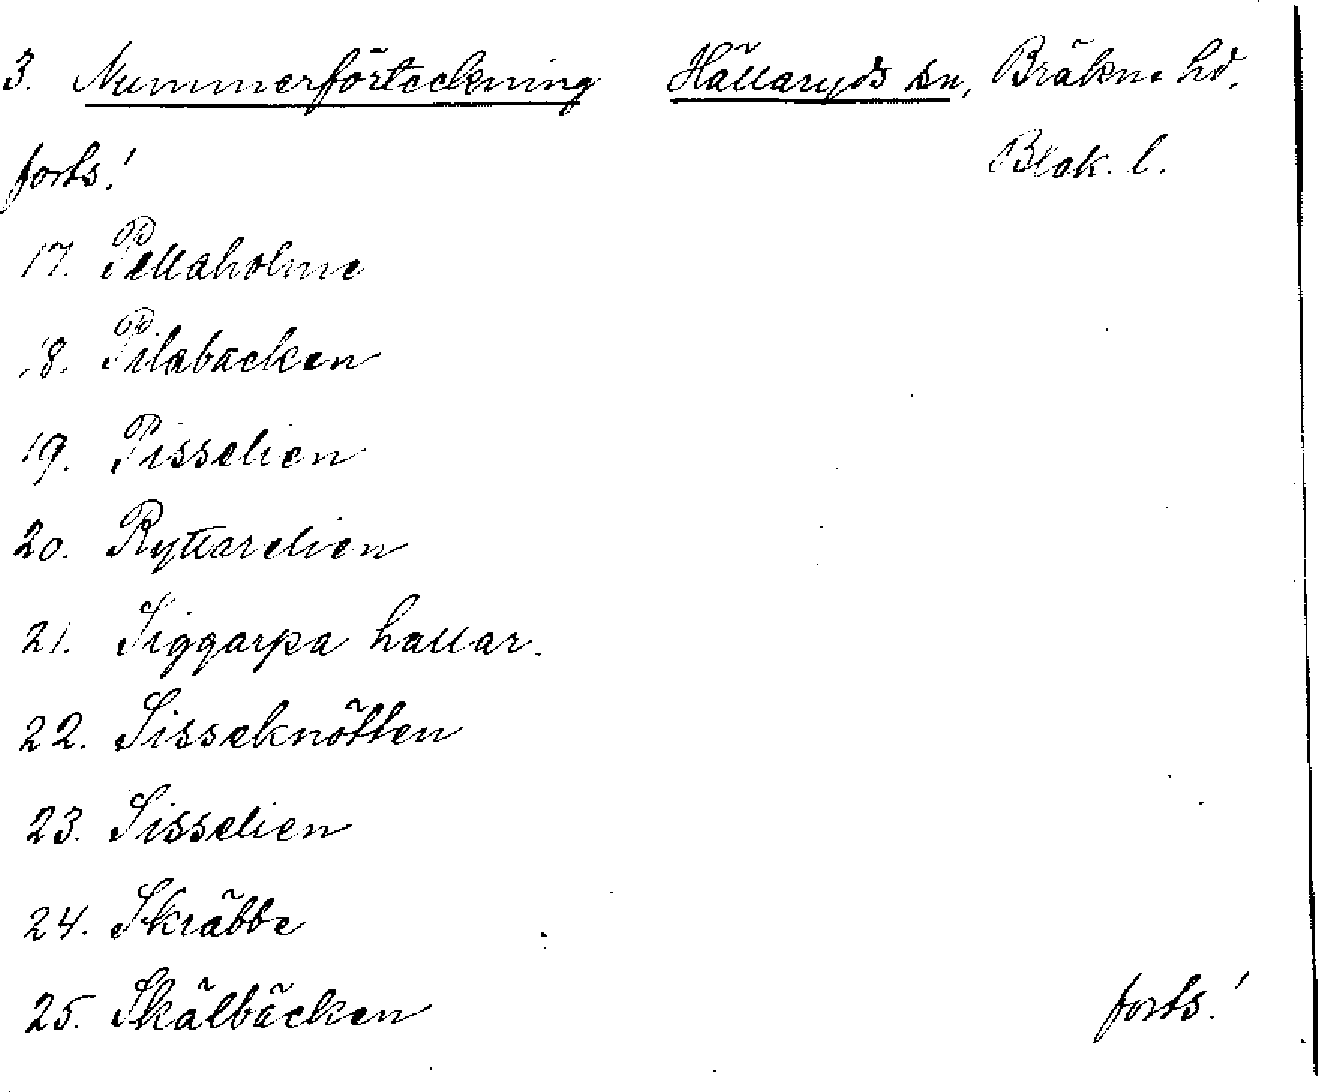 3. Nummerförteckning Hällaryds sn, Bräkne hd.
forts! Blek. l.
17. Pellaholme
18. Pilabäcken
19. Pisselien
20. Ryttarelien
21. Siggarpa hallar.
22. Sisseknötten
23. Sisselien
24. Skräbbe
25. Skälbäcken forts!